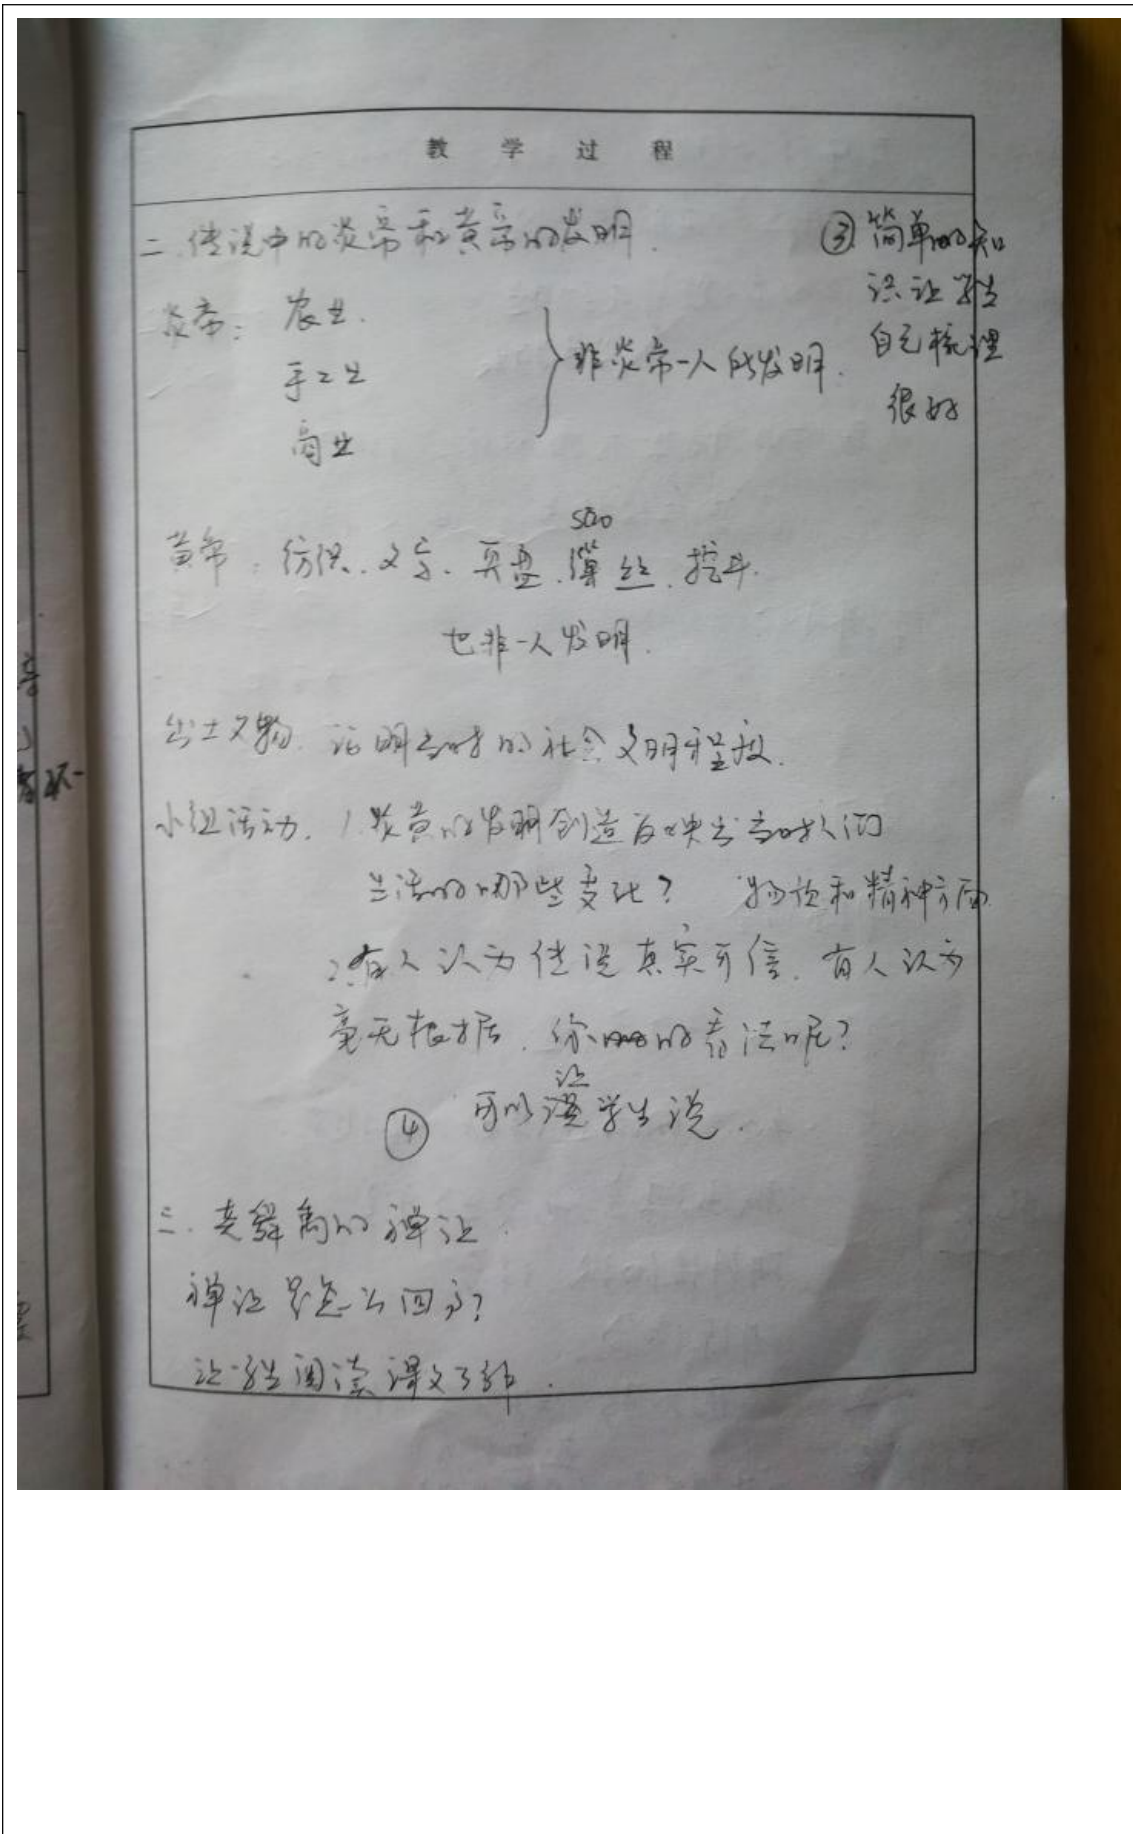 教学过程
二.传说中的炎帝和黄帝的发明.
③简单的知
识让学生
自己梳理
很好
炎帝：农业.
手工业
商业
非炎帝一人所发明.
sāo
黄帝：纺织、文字、算盘、缫丝、
也非一人发明.
出土文物. 证明当时的社会文明程度.
小组活动. 1.炎黄的发明创造反映出当时人们
生活的哪些变化？ 物质和精神方面
2.有人认为传说真实可信、有人认为
毫无根据、你的看法呢？
让
④ 可以学生说.
三.尧舜禹的禅让.
禅让是怎么回事？
让学生阅读课文了解.